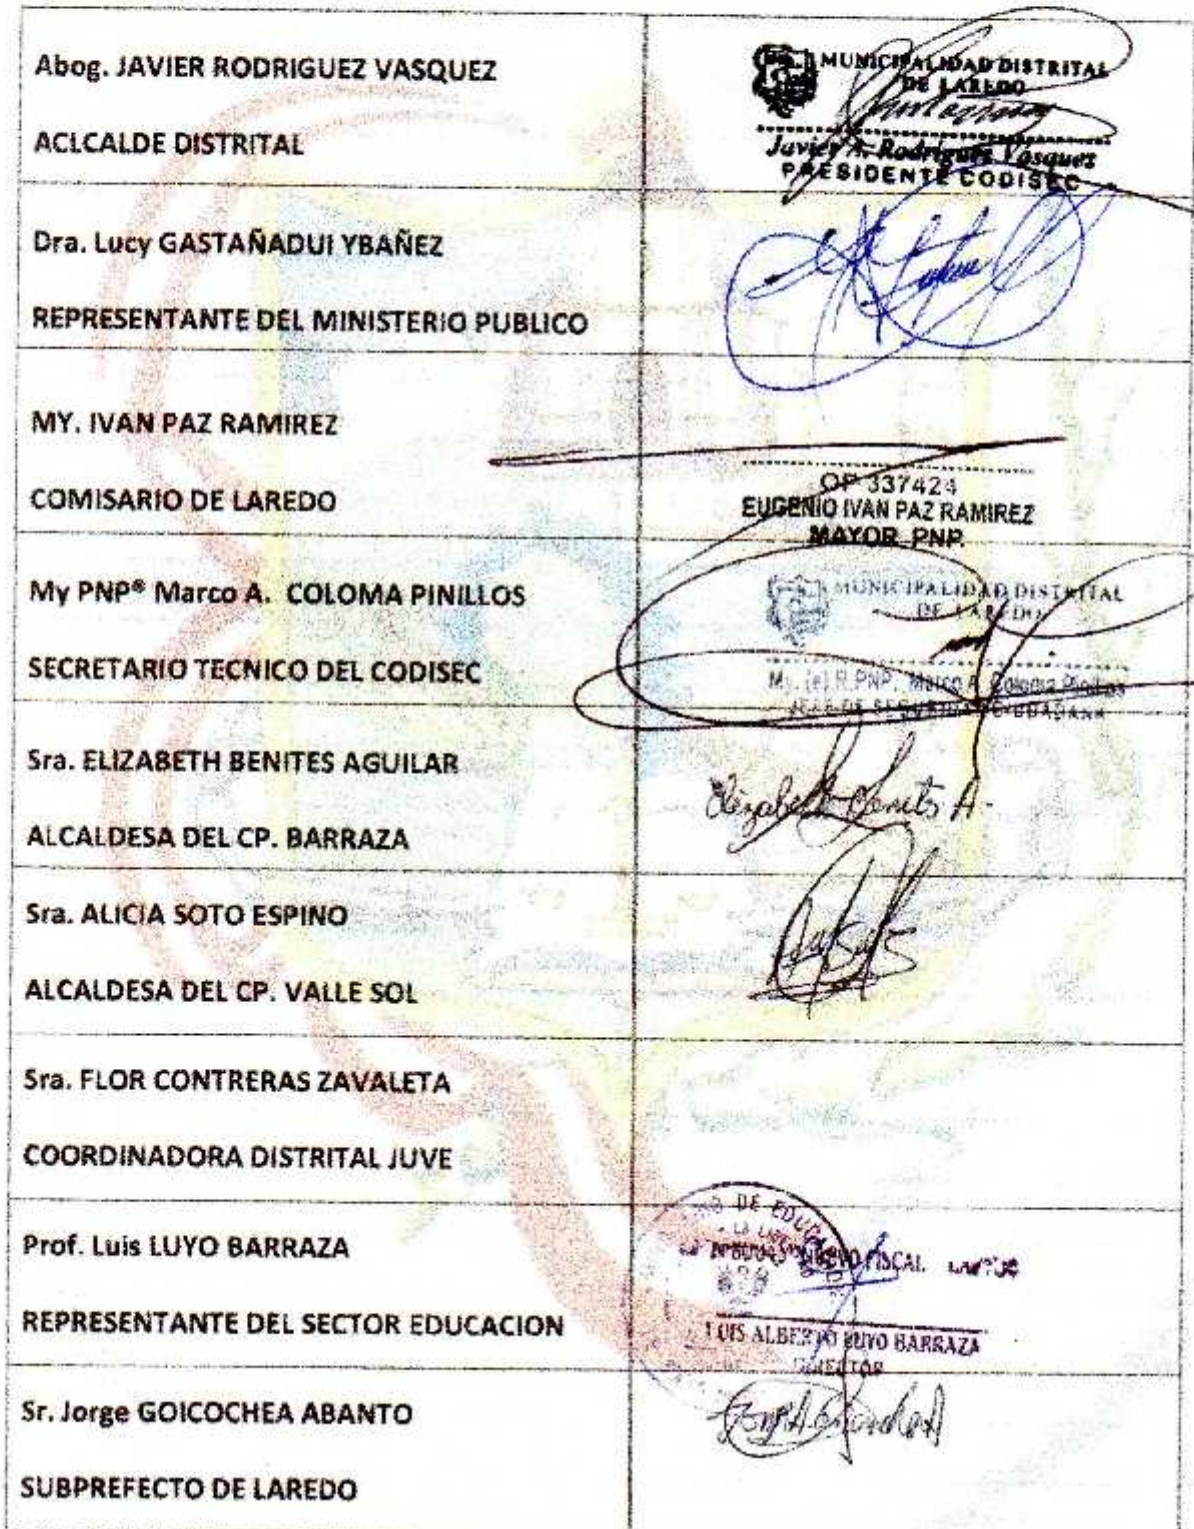 Abog. JAVIER RODRIGUEZ VASQUEZ
ACLCALDE DISTRITAL
MUNICIPALIDAD DISTRITAL
DE LAREDO
Javier A. Rodríguez Vásquez
PRESIDENTE CODISEC
Dra. Lucy GASTAÑADUI YBAÑEZ
REPRESENTANTE DEL MINISTERIO PUBLICO
MY. IVAN PAZ RAMIREZ
COMISARIO DE LAREDO
OP 337424
EUGENIO IVAN PAZ RAMIREZ
MAYOR PNP
My PNP® Marco A. COLOMA PINILLOS
SECRETARIO TECNICO DEL CODISEC
MUNICIPALIDAD DISTRITAL
DE LAREDO
My. (e) R PNP. Marco A. Coloma Pinillos
JEFE DE SEGURIDAD CIUDADANA
Sra. ELIZABETH BENITES AGUILAR
ALCALDESA DEL CP. BARRAZA
Elizabeth Benites A.
Sra. ALICIA SOTO ESPINO
ALCALDESA DEL CP. VALLE SOL
Sra. FLOR CONTRERAS ZAVALETA
COORDINADORA DISTRITAL JUVE
Prof. Luis LUYO BARRAZA
REPRESENTANTE DEL SECTOR EDUCACION
DE EDUCACION
LUIS ALBERTO LUYO BARRAZA
DIRECTOR
Sr. Jorge GOICOCHEA ABANTO
SUBPREFECTO DE LAREDO